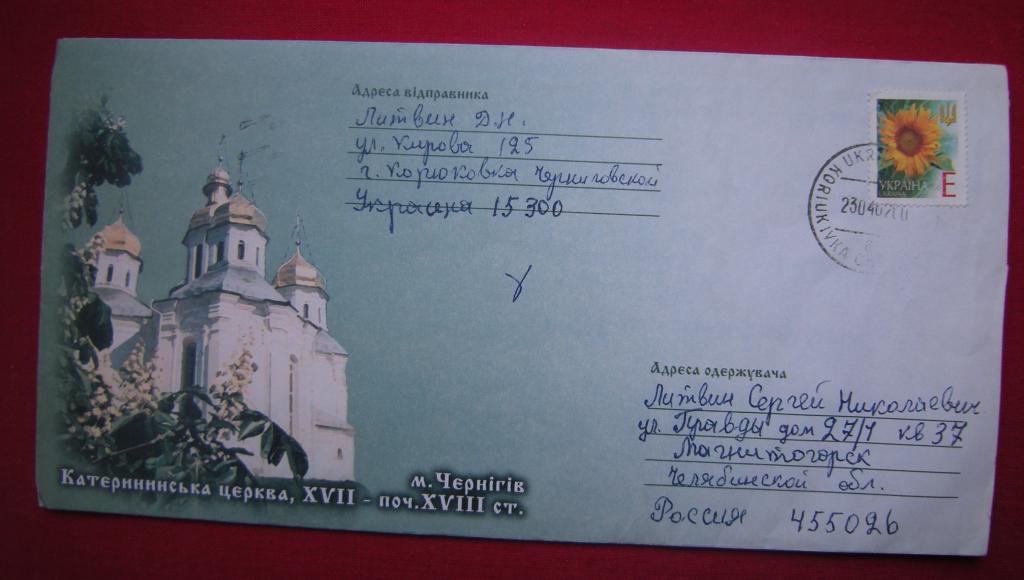 Адреса відправника
Литвин Д.Н.
ул. Кирова 125
г. Корюковка Черниговской
Украина 15300
УКРАЇНА
E
KORIUKIVKA
UKR
230402
Адреса одержувача
Литвин Сергей Николаевич
ул. Правды дом 27/1 кв 37
Магнитогорск
Челябинской обл.
Россия 455026
м.Чернігів
Катерининська церква, XVII - поч.XVIII ст.